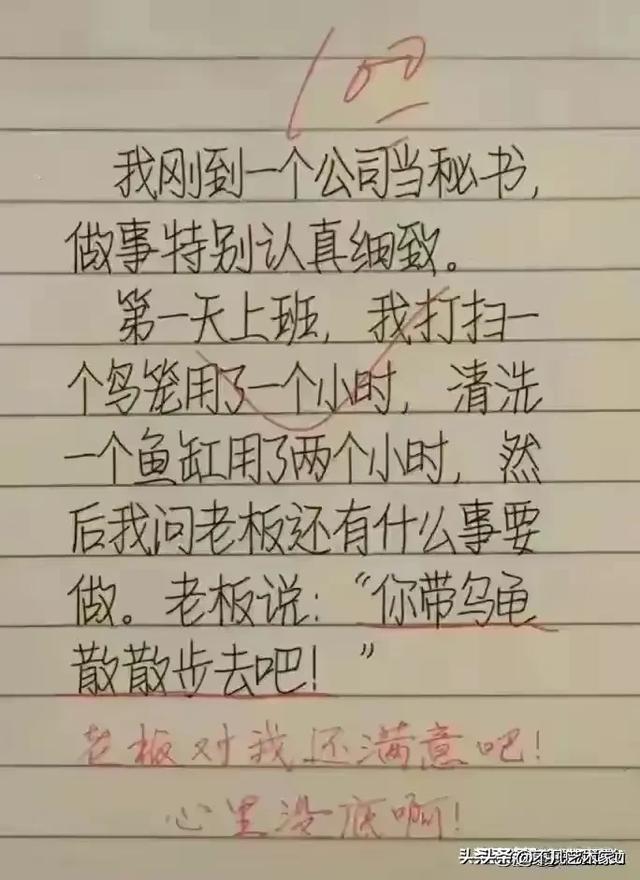 100
我刚到一个公司当秘书,
做事特别认真细致。
第一天上班,我打扫一
个鸟笼用了一个小时,清洗
一个鱼缸用了两个小时,然
后我问老板还有什么事要
做。老板说:“你带乌龟
散散步去吧!”
老板对我还满意吧!
心里没底啊!
头条